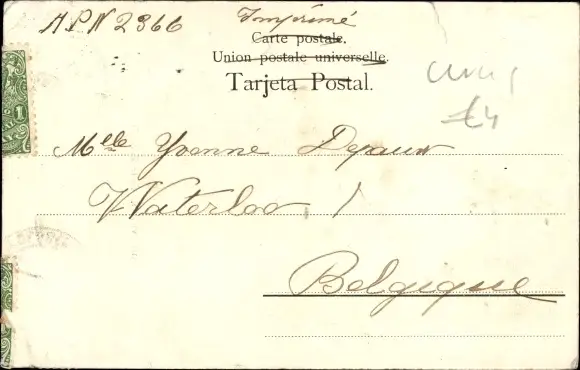 A.P.N 2366 Imprimé
Carte postale.
Union postale universelle.
Tarjeta Postal.
£4
1
Melle Yvonne
Waterloo
Belgique